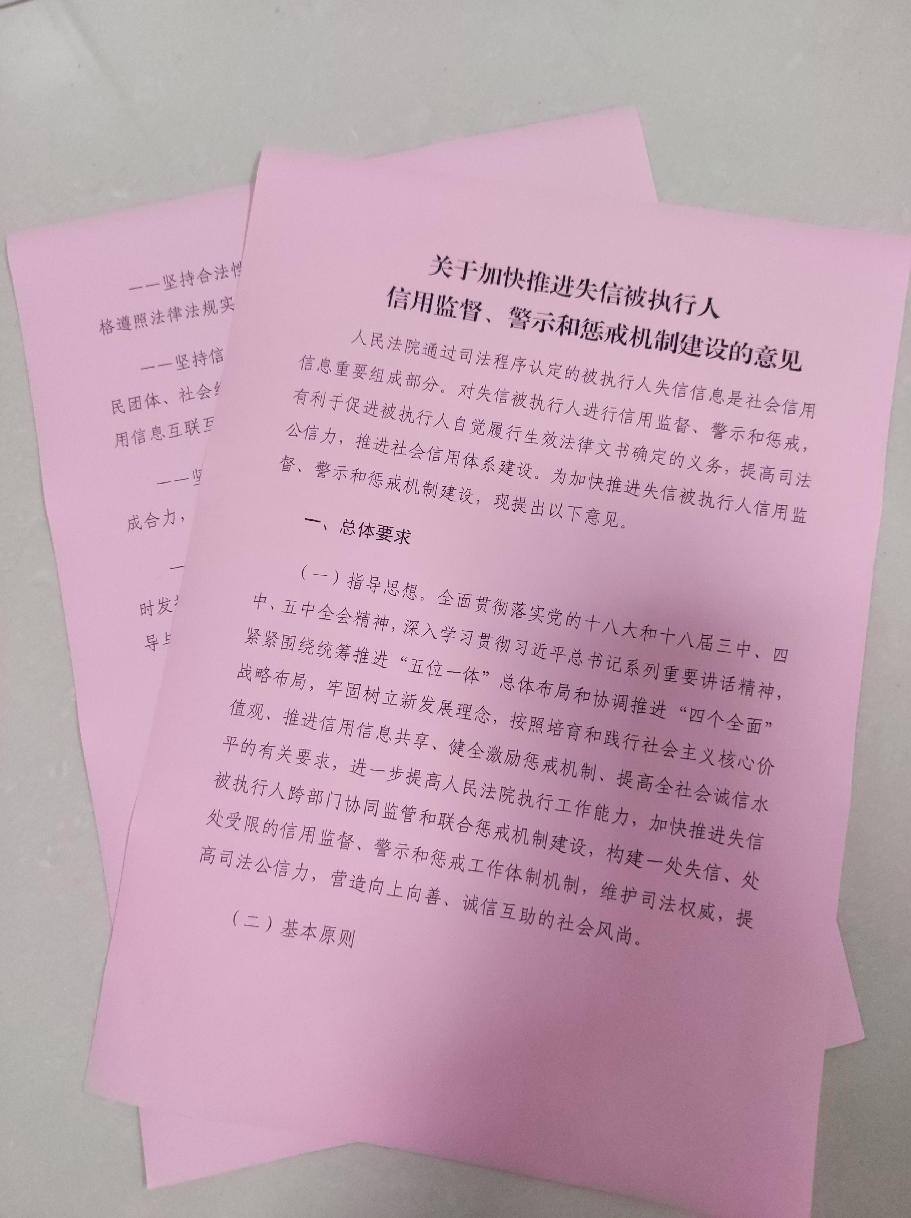 关于加快推进失信被执行人
信用监督、警示和惩戒机制建设的意见
人民法院通过司法程序认定的被执行人失信信息是社会信用
信息重要组成部分。对失信被执行人进行信用监督、警示和惩戒，
有利于促进被执行人自觉履行生效法律文书确定的义务，提高司法
公信力，推进社会信用体系建设。为加快推进失信被执行人信用监
督、警示和惩戒机制建设，现提出以下意见。
一、总体要求
（一）指导思想。全面贯彻落实党的十八大和十八届三中、四
中、五中全会精神，深入学习贯彻习近平总书记系列重要讲话精神，
紧紧围绕统筹推进“五位一体”总体布局和协调推进“四个全面”
战略布局，牢固树立新发展理念，按照培育和践行社会主义核心价
值观、推进信用信息共享、健全激励惩戒机制、提高全社会诚信水
平的有关要求，进一步提高人民法院执行工作能力，加快推进失信
被执行人跨部门协同监管和联合惩戒机制建设，构建一处失信、处
处受限的信用监督、警示和惩戒工作体制机制，维护司法权威，提
高司法公信力，营造向上向善、诚信互助的社会风尚。
（二）基本原则
——坚持合法性
格遵照法律法规实
——坚持信
民团体、社会组
用信息互联互
——坚
成合力，
—
时发挥
导与